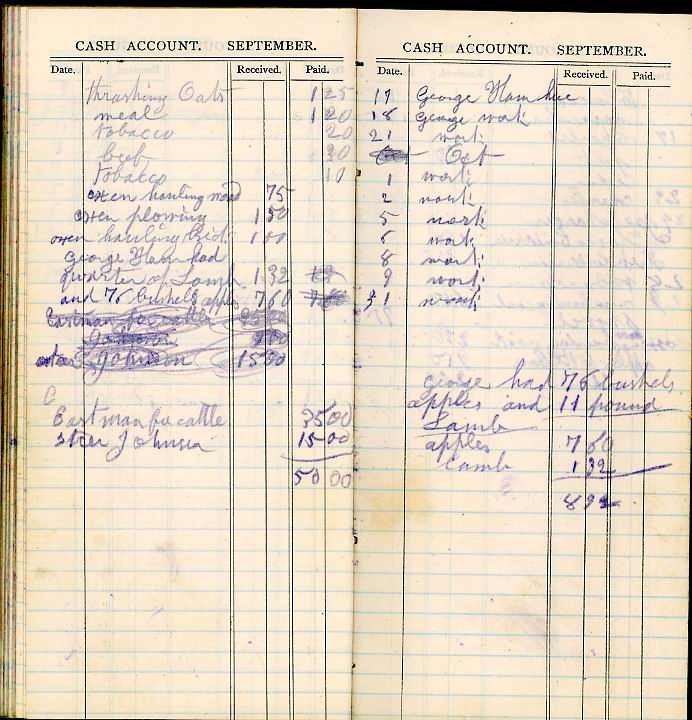 CASH ACCOUNT. SEPTEMBER.
Date. Received. Paid.
thrashing Oats 1 25
meal 1 20
tobacco 20
beef 30
tobacco 10
oxen hauling wood 75
oxen plowing 1 50
oxen hauling 1 00
George Ham had
quarter of Lamb 1 32
and 76 bushels apples 7 60
Eastman for cattle
Johnson
Johnson 15 00
Eastman for cattle 35 00
steer Johnson 15 00
50 00
CASH ACCOUNT. SEPTEMBER.
Date. Received. Paid.
17 George Ham
18 George work
21 work
Oct
1 work
2 work
5 work
6 work
8 work
9 work
31 work
George had 76 bushels
apples and 11 pound
Lamb
apples 7 60
Lamb 1 32
8 92